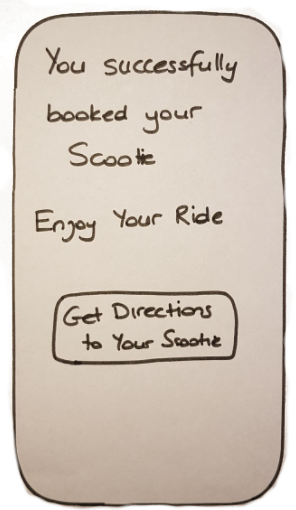 You successfully
booked your
Scootie
Enjoy Your Ride
Get Directions
to Your Scootie